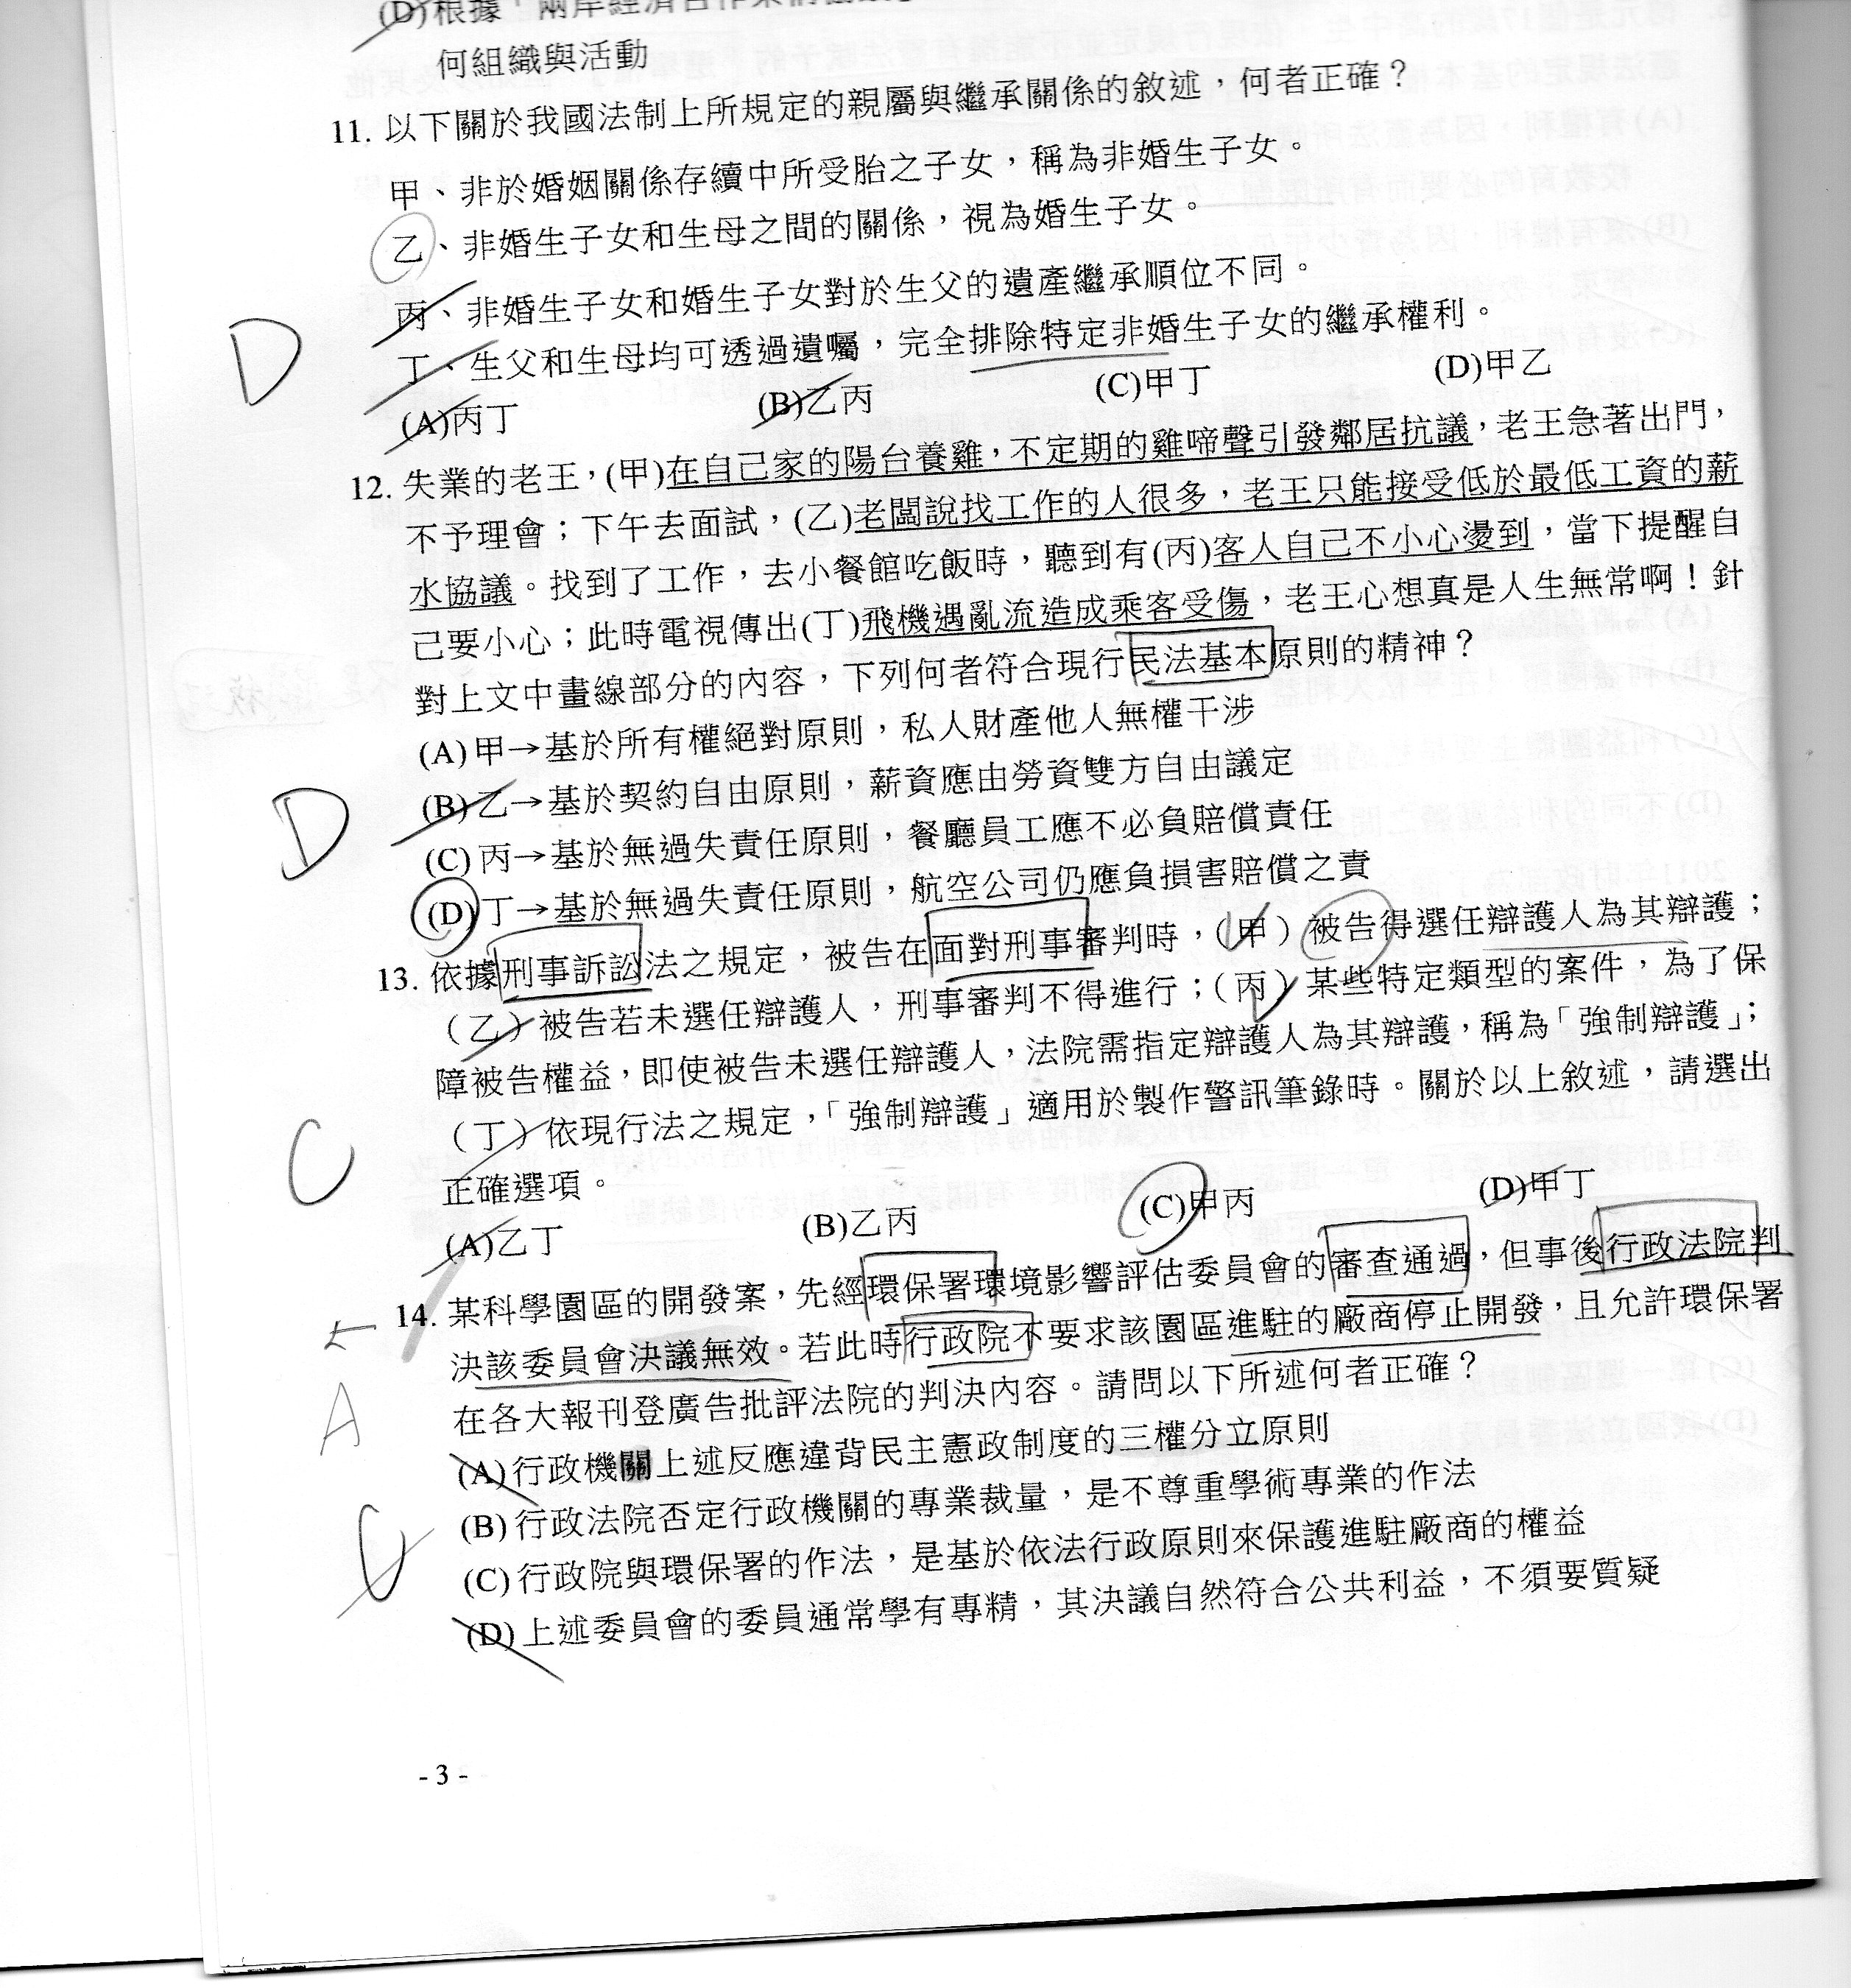 (D)根據「兩岸經濟合作
何組織與活動
11. 以下關於我國法制上所規定的親屬與繼承關係的敘述，何者正確？
甲、非於婚姻關係存續中所受胎之子女，稱為非婚生子女。
乙、非婚生子女和生母之間的關係，視為婚生子女。
丙、非婚生子女和婚生子女對於生父的遺產繼承順位不同。
D
丁、生父和生母均可透過遺囑，完全排除特定非婚生子女的繼承權利。
(A)丙丁 (B)乙丙 (C)甲丁 (D)甲乙
12. 失業的老王，(甲)在自己家的陽台養雞，不定期的雞啼聲引發鄰居抗議，老王急著出門，
不予理會；下午去面試，(乙)老闆說找工作的人很多，老王只能接受低於最低工資的薪
水協議。找到了工作，去小餐館吃飯時，聽到有(丙)客人自己不小心燙到，當下提醒自
己要小心；此時電視傳出(丁)飛機遇亂流造成乘客受傷，老王心想真是人生無常啊！針
對上文中畫線部分的內容，下列何者符合現行民法基本原則的精神？
(A)甲→基於所有權絕對原則，私人財產他人無權干涉
(B)乙→基於契約自由原則，薪資應由勞資雙方自由議定
D
(C)丙→基於無過失責任原則，餐廳員工應不必負賠償責任
(D)丁→基於無過失責任原則，航空公司仍應負損害賠償之責
13. 依據刑事訴訟法之規定，被告在面對刑事審判時，（甲）被告得選任辯護人為其辯護；
（乙）被告若未選任辯護人，刑事審判不得進行；（丙）某些特定類型的案件，為了保
障被告權益，即使被告未選任辯護人，法院需指定辯護人為其辯護，稱為「強制辯護」；
（丁）依現行法之規定，「強制辯護」適用於製作警訊筆錄時。關於以上敘述，請選出
C
正確選項。
(A)乙丁 (B)乙丙 (C)甲丙 (D)甲丁
14. 某科學園區的開發案，先經環保署環境影響評估委員會的審查通過，但事後行政法院判
決該委員會決議無效。若此時行政院不要求該園區進駐的廠商停止開發，且允許環保署
在各大報刊登廣告批評法院的判決內容。請問以下所述何者正確？
A
(A)行政機關上述反應違背民主憲政制度的三權分立原則
(B)行政法院否定行政機關的專業裁量，是不尊重學術專業的作法
(C)行政院與環保署的作法，是基於依法行政原則來保護進駐廠商的權益
(D)上述委員會的委員通常學有專精，其決議自然符合公共利益，不須要質疑
- 3 -